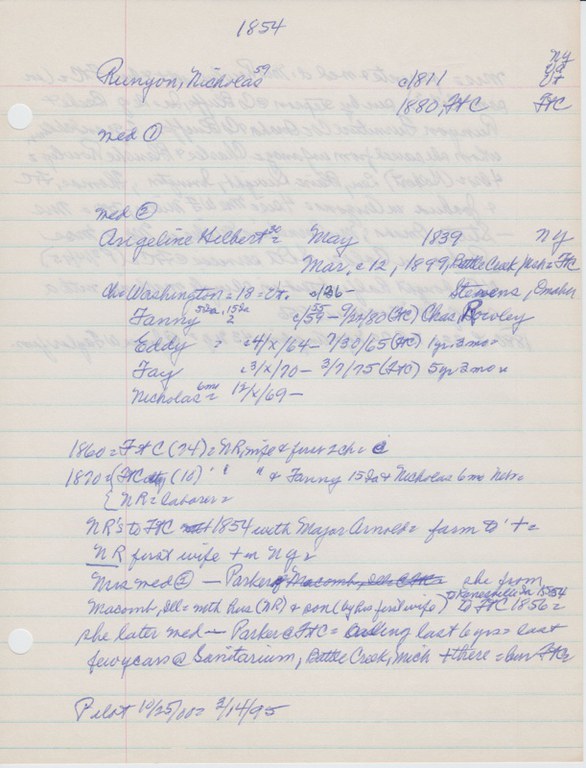 1854
Runyon, Nicholas 59 c/1811 NY Va Vt
1880, FtC FtC
med ①
med ②
Angeline Hilbert 30 = May 1839 NY
Mar, c12, 1899, Battle Creek, Mich = FtC
Ch = Washington = 18 = Vt. c/36 – Stevens, Omaha
Fanny 5Ia. 15Ia 2 c/55 59 – 9/20/80 (FtC) Chas. Rowley
Eddy = c4/x/64 – 7/30/65 (FtC) 1 yr 3 mo
Fay c3/x/70 – 3/7/75 (FtC) 5 yr 3 mo
Nicholas 6mo = 12/x/69 –
1860 = FtC (74) = NR, wife & first 2 ch = c
1870 = { FtC (10) " " " & Fanny 15Ia & Nicholas 6 mo Nebr =
{ NR = laborer =
NR's to FtC 1854 with Major Arnold = farm to + =
NR first wife + in NY =
Mrs med ② — Parker of Macomb, Ill she from
Macomb, Ill = with hus (NR) & son (by his first wife) to Kanesville in 1854 to FtC 1856 =
she later med — Parker @ FtC = ailing last 6 yrs = last
few years @ Sanitarium, Battle Creek, Mich + there = bur FtC
Pilot 10/25/00 = 2/14/95